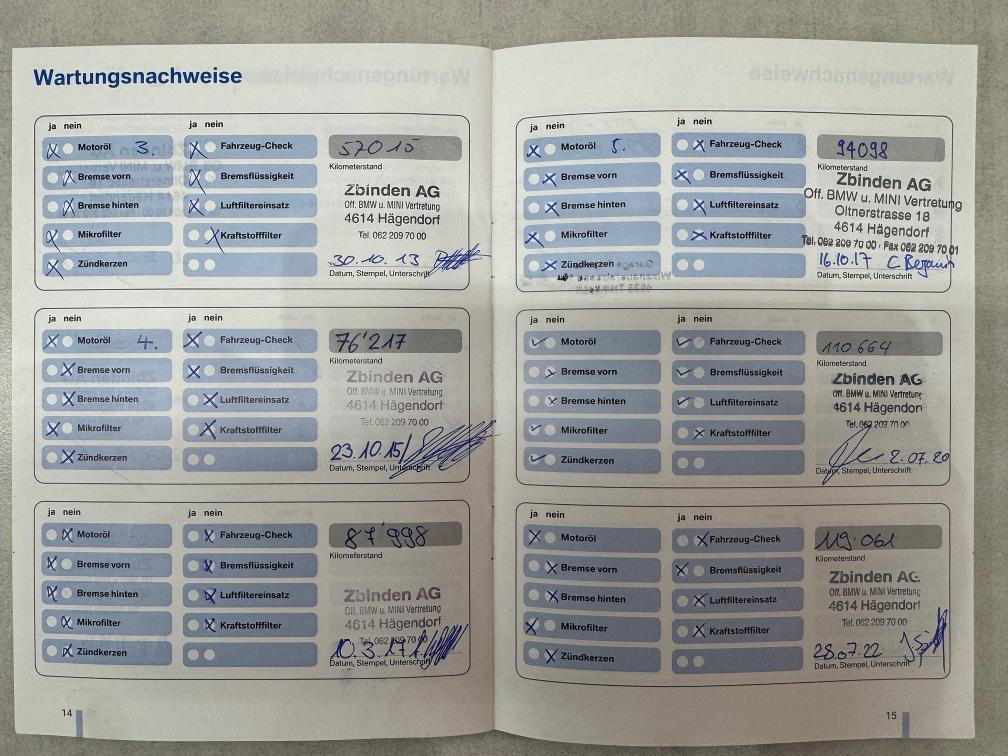 Wartungsnachweise
ja nein ja nein
Motoröl 3. Fahrzeug-Check 57015
Kilometerstand
Bremse vorn Bremsflüssigkeit
Zbinden AG
Off. BMW u. MINI Vertretung
Bremse hinten Luftfiltereinsatz
4614 Hägendorf
Tel. 062 209 70 00
Mikrofilter Kraftstofffilter
Zündkerzen
30.10.13
Datum, Stempel, Unterschrift
ja nein ja nein
Motoröl 4. Fahrzeug-Check 76'217
Kilometerstand
Bremse vorn Bremsflüssigkeit
Zbinden AG
Off. BMW u. MINI Vertretung
Bremse hinten Luftfiltereinsatz
4614 Hägendorf
Tel. 062 209 70 00
Mikrofilter Kraftstofffilter
Zündkerzen
23.10.15
Datum, Stempel, Unterschrift
ja nein ja nein
Motoröl Fahrzeug-Check 87'998
Kilometerstand
Bremse vorn Bremsflüssigkeit
Zbinden AG
Off. BMW u. MINI Vertretung
Bremse hinten Luftfiltereinsatz
4614 Hägendorf
Mikrofilter Kraftstofffilter
Tel. 062 209 70 00
Zündkerzen
10.3.17
Datum, Stempel, Unterschrift
14
ja nein ja nein
Motoröl 5. Fahrzeug-Check 94098
Kilometerstand
Bremse vorn Bremsflüssigkeit
Zbinden AG
Off. BMW u. MINI Vertretung
Bremse hinten Luftfiltereinsatz
Oltnerstrasse 18
4614 Hägendorf
Mikrofilter Kraftstofffilter
Tel. 062 209 70 00 · Fax 062 209 70 01
Zündkerzen
16.10.17
Datum, Stempel, Unterschrift
ja nein ja nein
Motoröl Fahrzeug-Check 110664
Kilometerstand
Bremse vorn Bremsflüssigkeit
Zbinden AG
Off. BMW u. MINI Vertretung
Bremse hinten Luftfiltereinsatz
4614 Hägendorf
Tel. 062 209 70 00
Mikrofilter Kraftstofffilter
Zündkerzen
2.07.20
Datum, Stempel, Unterschrift
ja nein ja nein
Motoröl Fahrzeug-Check 119.061
Kilometerstand
Bremse vorn Bremsflüssigkeit
Zbinden AG
Off. BMW u. MINI Vertretung
Bremse hinten Luftfiltereinsatz
4614 Hägendorf
Tel. 062 209 70 00
Mikrofilter Kraftstofffilter
Zündkerzen
28.07.22
Datum, Stempel, Unterschrift
15